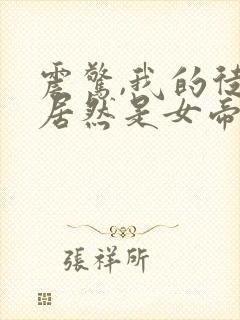 震驚,我的徒
居然是女帝
張祥所